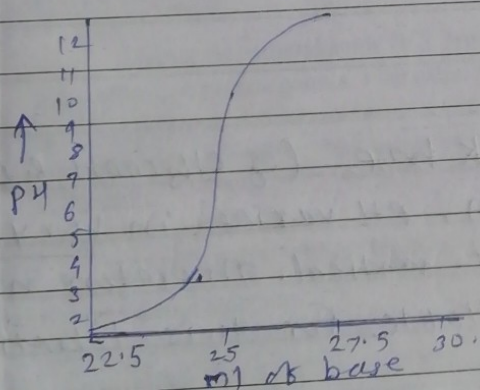 12
11
10
9
8
7
6
5
4
3
2
PH
22.5 25 27.5 30.
ml of base